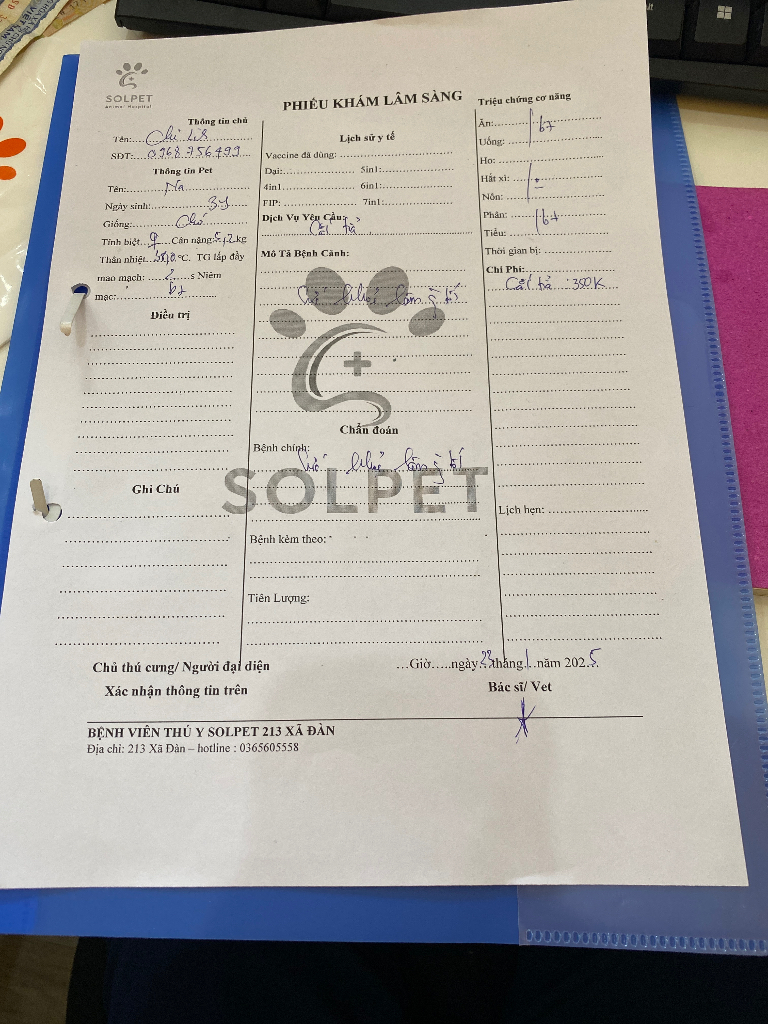 SOLPET
Animal Hospital
PHIẾU KHÁM LÂM SÀNG
Thông tin chủ
Tên:
SĐT: 0968 756 499
Thông tin Pet
Tên: Na
Ngày sinh: 3y
Giống: Chó
Tính biệt: ♀ Cân nặng: 5,2 kg
Thân nhiệt: °C. TG lấp đầy
mao mạch: 2 s Niêm
mạc: bt
Điều trị
Ghi Chú
Lịch sử y tế
Vaccine đã dùng:
Dại: 5in1:
4in1 6in1:
FIP: 7in1:
Dịch Vụ Yêu Cầu:
Cắt tỉa
Mô Tả Bệnh Cảnh:
Chẩn đoán
Bệnh chính:
SOLPET
Bệnh kèm theo:
Tiên Lượng:
Triệu chứng cơ năng
Ăn: bt
Uống:
Ho:
Hắt xì: -
Nôn:
Phân: bt
Tiểu:
Thời gian bị:
Chi Phí:
Cắt tỉa 350K
Lịch hẹn:
Chủ thú cưng/ Người đại diện
Xác nhận thông tin trên
...Giờ.....ngày 23 tháng 1 năm 2025
Bác sĩ/ Vet
BỆNH VIỆN THÚ Y SOLPET 213 XÃ ĐÀN
Địa chỉ: 213 Xã Đàn – hotline : 0365605558